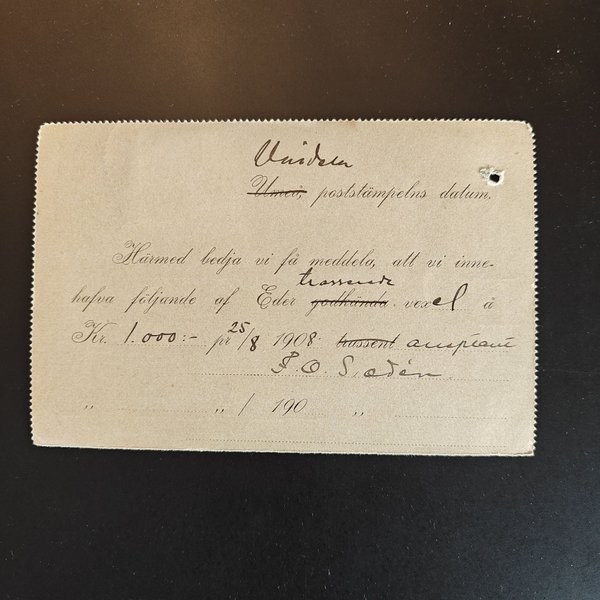 Umeå, poststämpelns datum.
Härmed bedja vi få meddela, att vi inne-
trasserade
hafva följande af Eder godkända vexel å
Kr. 1.000:- pr 25/8 1908 trassent acceptant
" " / 190 "